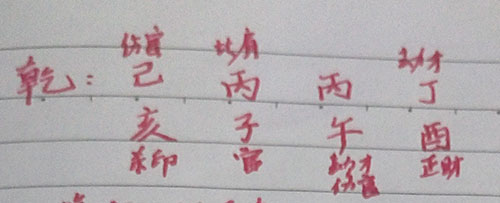 伤官 比肩 劫才
乾：己 丙 丙 丁
亥 子 午 酉
杀印 官 劫才 正财
伤官